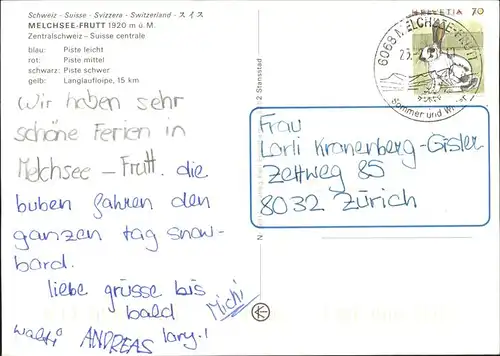 Schweiz - Suisse - Svizzera - Switzerland - スイス
MELCHSEE-FRUTT 1920 m ü. M.
Zentralschweiz - Suisse centrale
blau: Piste leicht
rot: Piste mittel
schwarz: Piste schwer
gelb: Langlaufloipe, 15 km
Wir haben sehr
schöne Ferien in
Melchsee - Frutt. die
buben fahren den
ganzen tag snow-
bord.
liebe grüsse bis
bald
Michi
Walti ANDREAS
HELVETIA 70
6068 MELCHSEE-FRUTT
Sommer und Winter
Frau
Lorli Kronenberg-Gisler
Zettweg 85
8032 Zürich
Stansstad